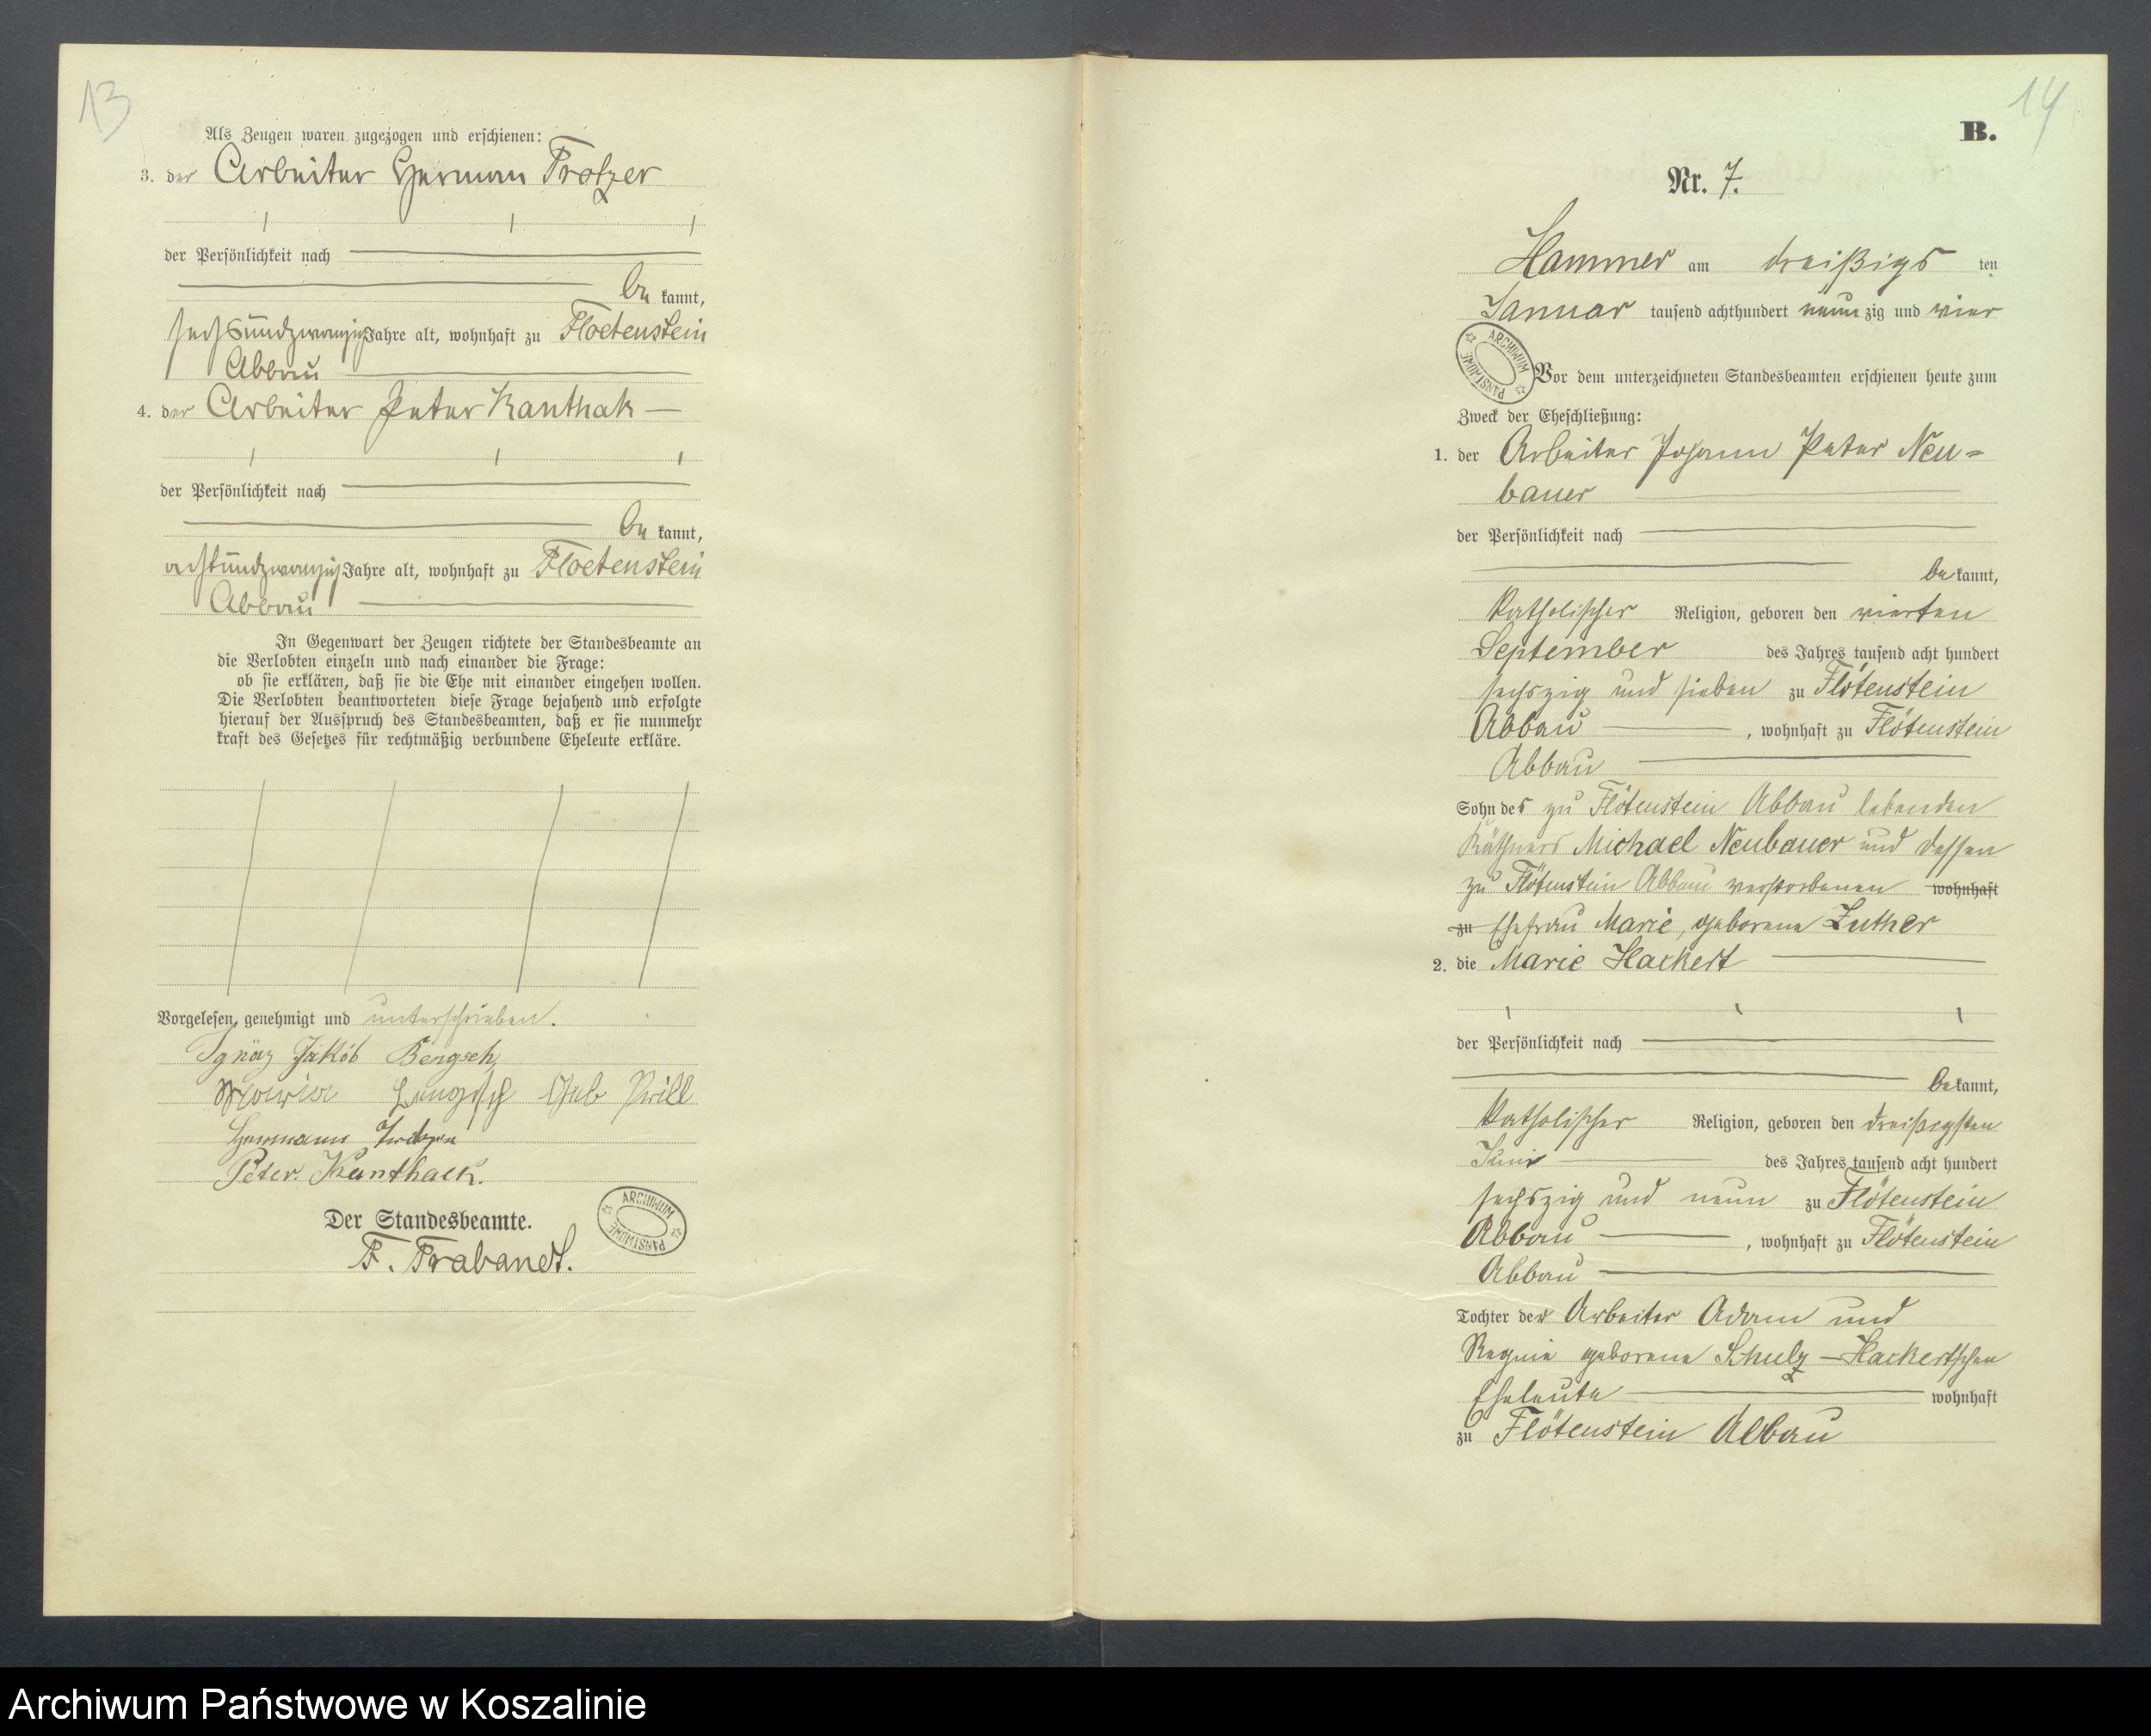 13
Als Zeugen waren zugezogen und erschienen:
3. der Arbeiter Herman Trotzer
der Persönlichkeit nach
be kannt,
sechsundzwanzig Jahre alt, wohnhaft zu Floetenstein
Abbau
4. der Arbeiter Peter Kanthak
der Persönlichkeit nach
be kannt,
achtundzwanzig Jahre alt, wohnhaft zu Floetenstein
Abbau
In Gegenwart der Zeugen richtete der Standesbeamte an
die Verlobten einzeln und nach einander die Frage:
ob sie erklären, daß sie die Ehe mit einander eingehen wollen.
Die Verlobten beantworteten diese Frage bejahend und erfolgte
hierauf der Ausspruch des Standesbeamten, daß er sie nunmehr
kraft des Gesetzes für rechtmäßig verbundene Eheleute erkläre.
Vorgelesen, genehmigt und unterschrieben.
Ignaz Jakob Bengsch
Maria Bengsch Geb Prill
Hermann
Peter Kanthack.
Der Standesbeamte.
F. Trabandt.
ARCHIWUM PAŃSTWOWE
14
B.
Nr. 7.
Hammer am dreißigs ten
Januar tausend achthundert neun zig und vier
ARCHIWUM PAŃSTWOWE
Vor dem unterzeichneten Standesbeamten erschienen heute zum
Zweck der Eheschließung:
1. der Arbeiter Johann Peter Neu=
bauer
der Persönlichkeit nach
be kannt,
katholischer Religion, geboren den vierten
September des Jahres tausend acht hundert
sechszig und sieben zu Flötenstein
Abbau, wohnhaft zu Flötenstein
Abbau
Sohn des zu Flötenstein Abbau lebenden
Käthners Michael Neubauer und dessen
zu Flötenstein Abbau verstorbenen wohnhaft
zu Ehefrau Marie, geborene Luther
2. die Marie Hackert
der Persönlichkeit nach
be kannt,
katholischer Religion, geboren den dreißigsten
Juni des Jahres tausend acht hundert
sechszig und neun zu Flötenstein
Abbau, wohnhaft zu Flötenstein
Abbau
Tochter der Arbeiter Adam und
geborene Schulz - Hackertschen
Eheleute wohnhaft
zu Flötenstein Abbau
Archiwum Państwowe w Koszalinie